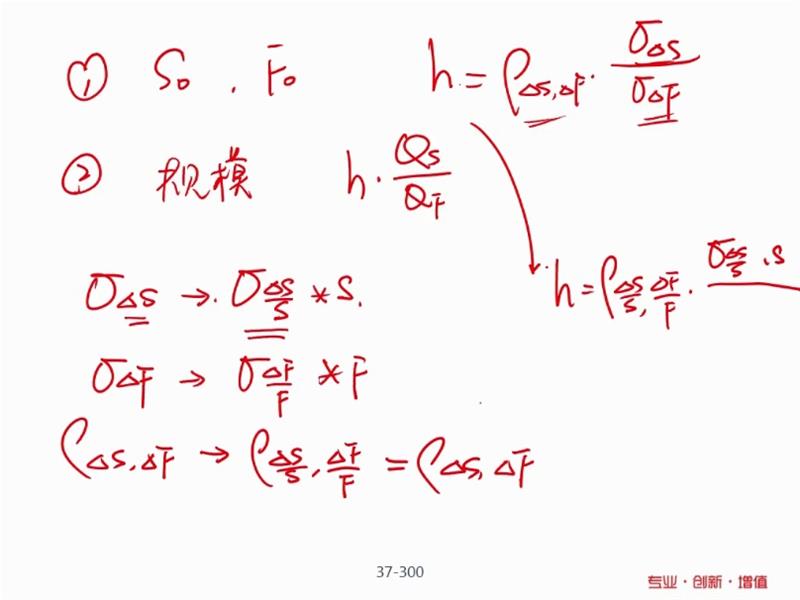 ① S₀ . F₀ h = ρ_{ΔS,ΔF} · σ_{ΔS} / σ_{ΔF}
② 规模 h · Q_S / Q_F
h = ρ_{ΔS/S, ΔF/F} · σ_{ΔS/S} · S
σ_{ΔS} → σ_{ΔS/S} * S.
σ_{ΔF} → σ_{ΔF/F} * F
ρ_{ΔS,ΔF} → ρ_{ΔS/S, ΔF/F} = ρ_{ΔS,ΔF}
37-300
专业·创新·增值